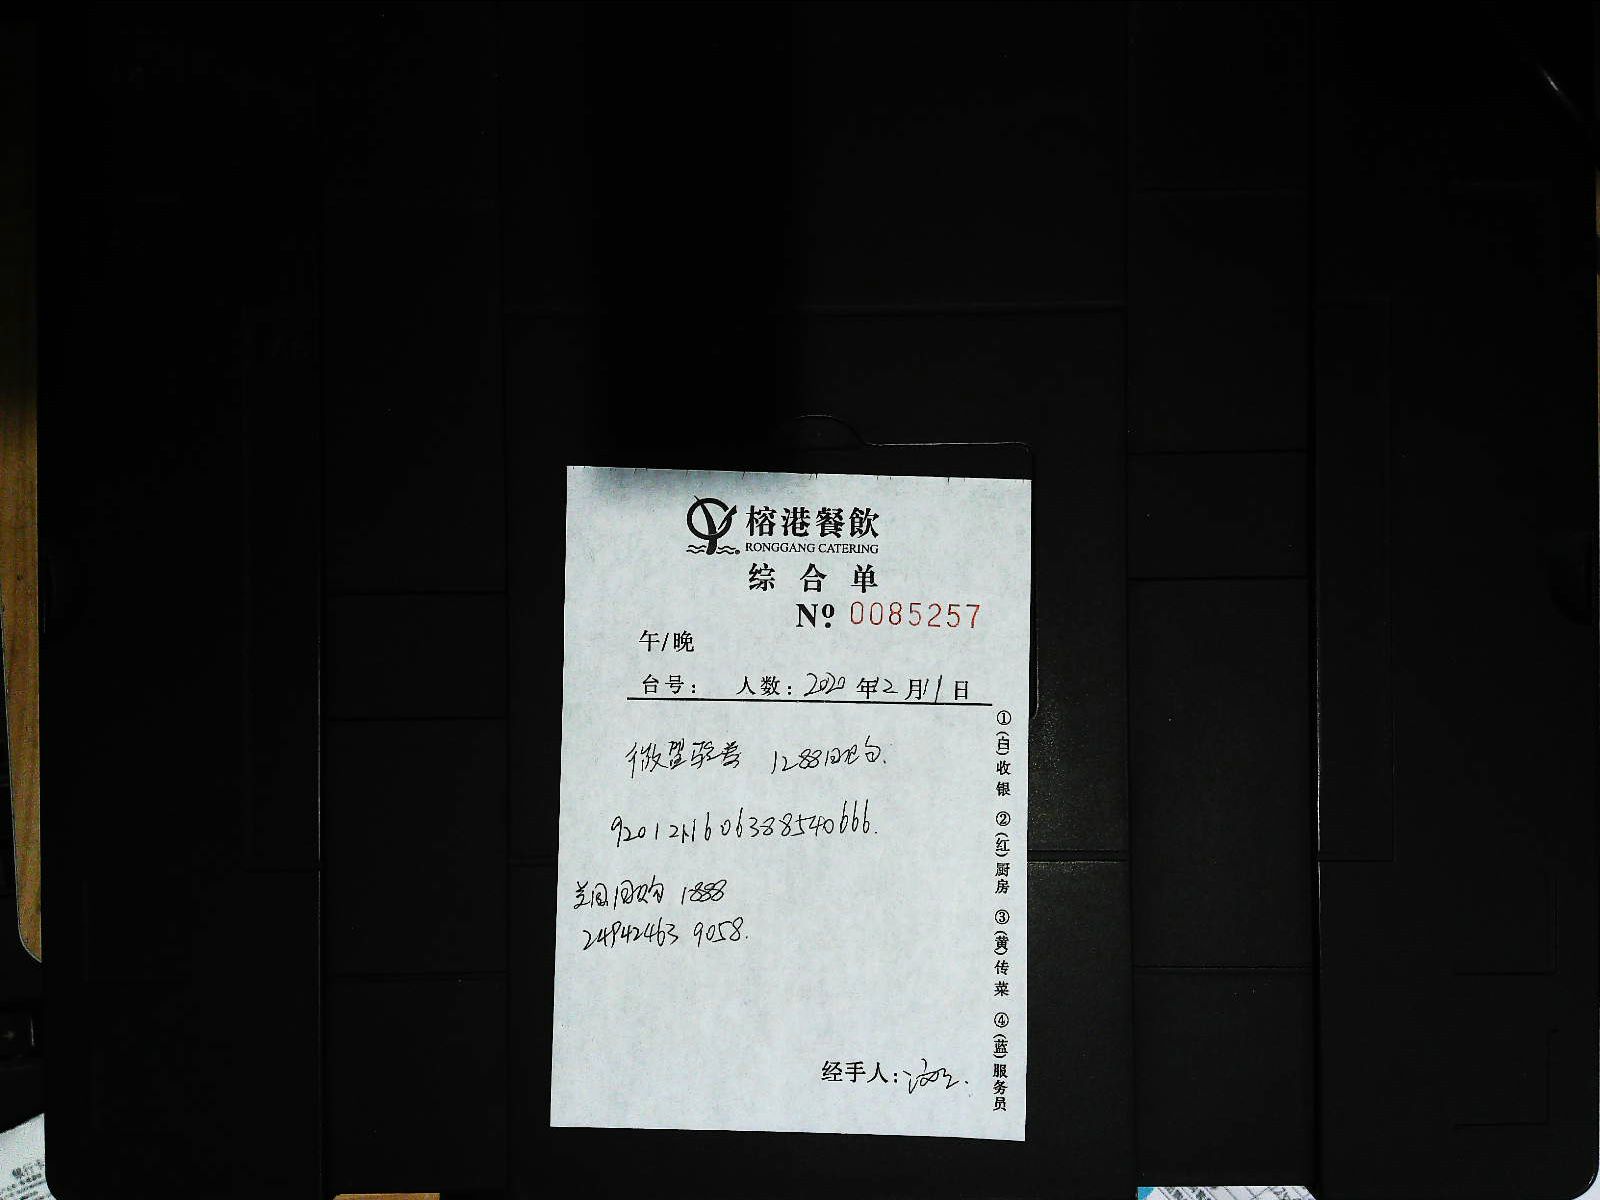 榕港餐飲
RONGGANG CATERING
综合单
Nº 0085257
午/晚
台号： 人数：2020年12月11日
微盟验券 1288回购
9201211606388540666.
美团回购 1888
24942463 9058.
①(白)收银 ②(红)厨房 ③(黄)传菜 ④(蓝)服务员
经手人：